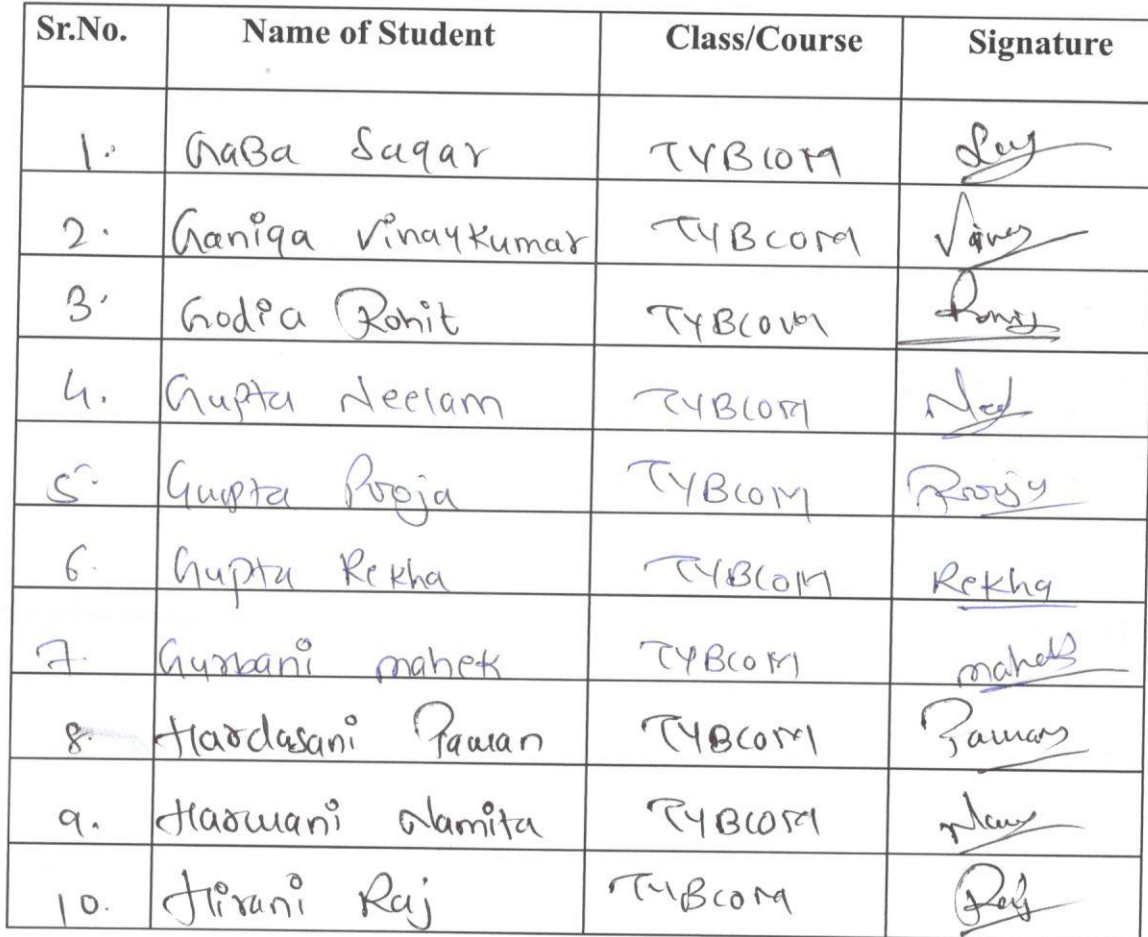 Sr.No. Name of Student Class/Course Signature
1. GaBa Sagar TYBCOM
2. Ganiga Vinaykumar TYBCOM
3. Godia Rohit TYBCOM
4. Gupta Neelam TYBCOM
5. Gupta Pooja TYBCOM Pooja
6. Gupta Rekha TYBCOM Rekha
7. Gurbani mahek TYBCOM mahek
8. Hardasani Pawan TYBCOM Pawan
9. Harwani Namita TYBCOM
10. Hirani Raj TYBCOM Raj